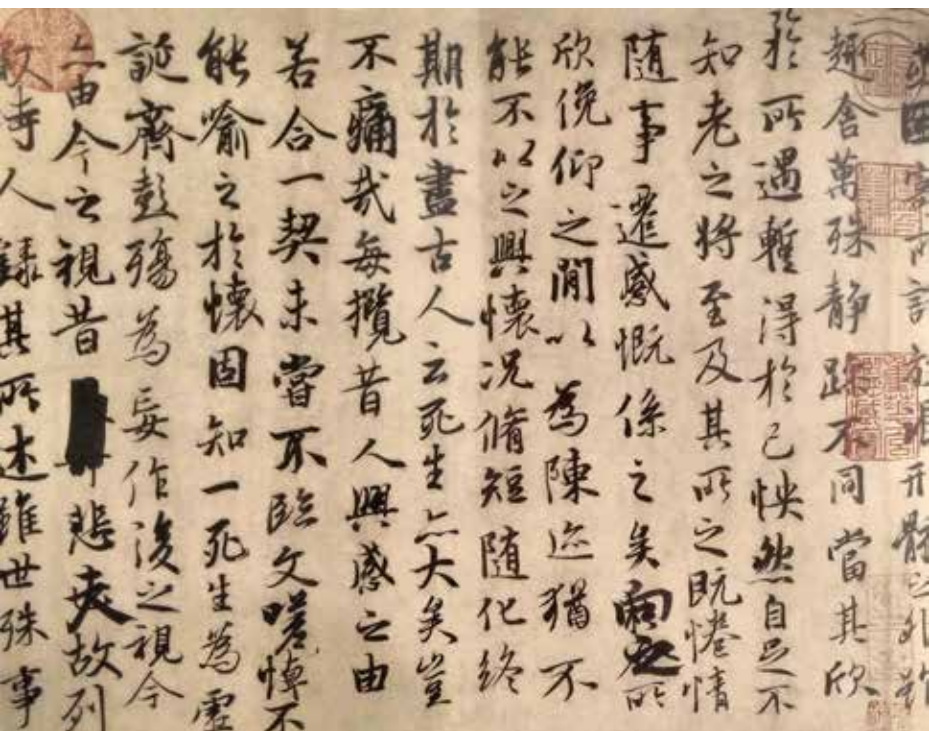 因寄所託放浪形骸之外雖
趣舍萬殊静躁不同當其欣
於所遇暫得於己怏然自足不
知老之將至及其所之既惓情
隨事遷感慨係之矣向之所
欣俛仰之閒以為陳迹猶不
能不以之興懷況脩短隨化終
期於盡古人云死生亦大矣豈
不痛哉每攬昔人興感之由
若合一契未嘗不臨文嗟悼不
能喻之於懷固知一死生為虛
誕齊彭殤為妄作後之視今
亦由今之視昔悲夫故列
敘時人錄其所述雖世殊事